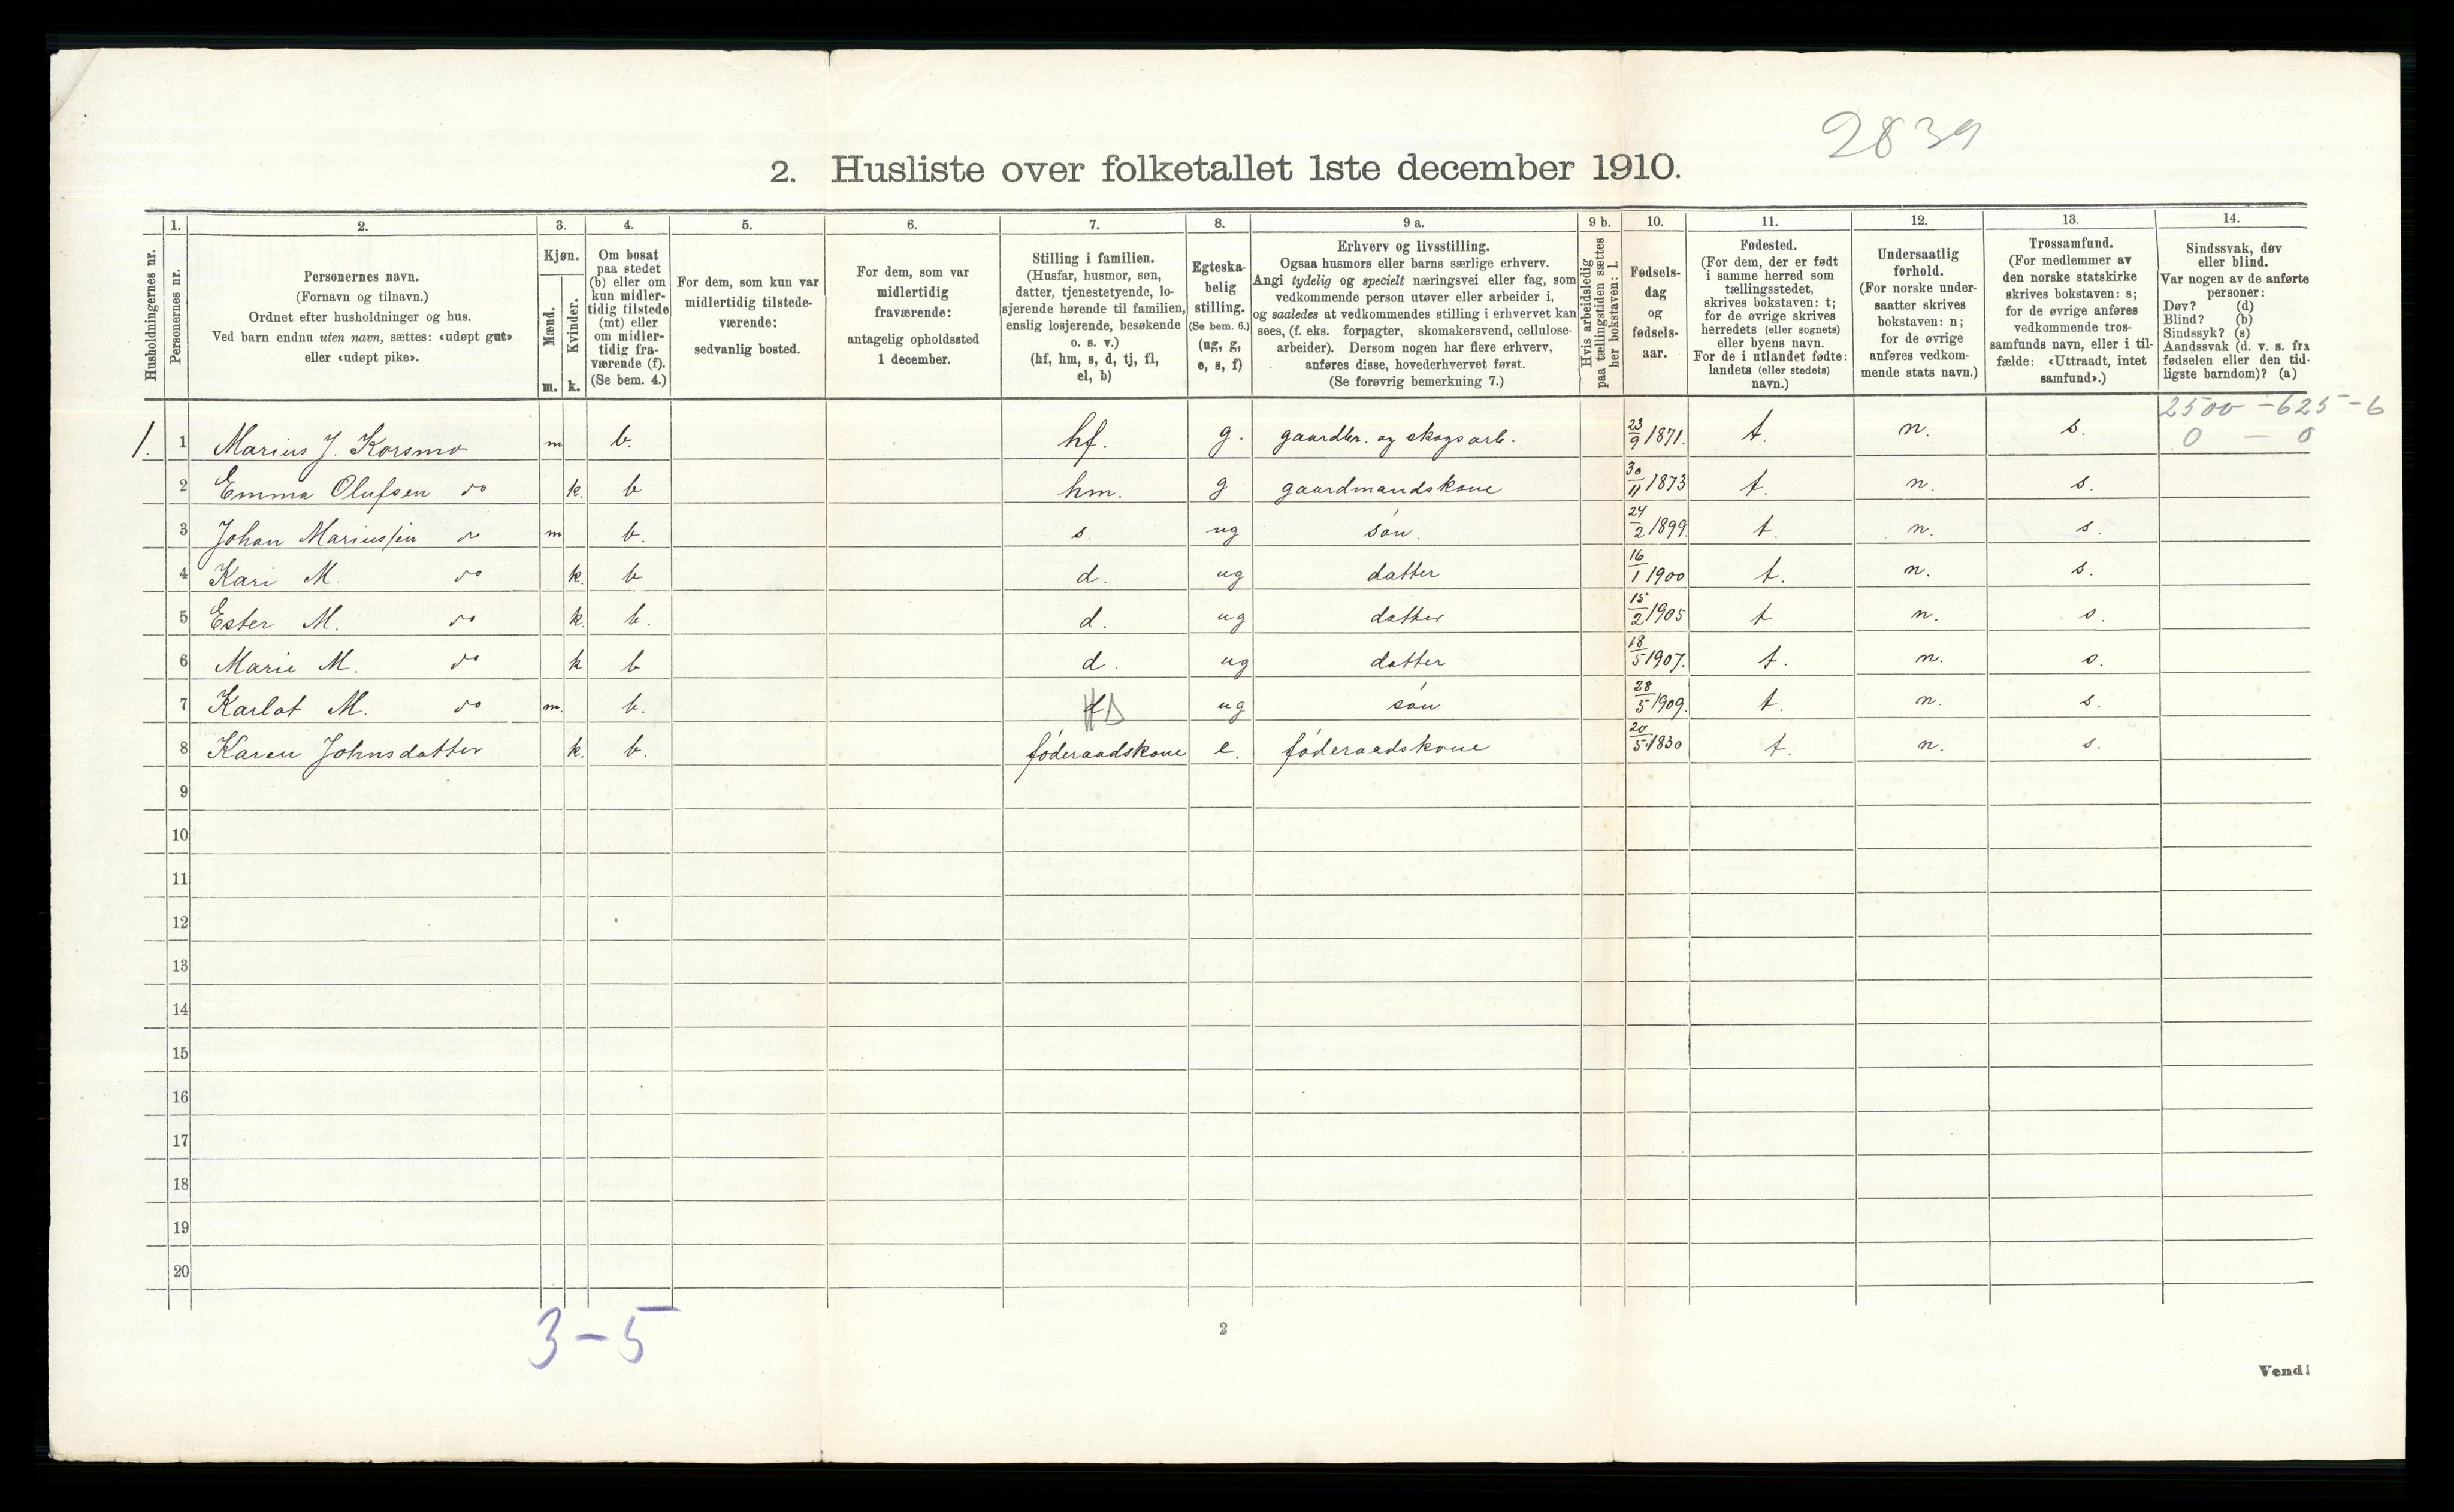 2839
2. Husliste over folketallet 1ste december 1910.
Husholdningernes nr.
1.
Personernes nr.
2.
Personernes navn.
(Fornavn og tilnavn.)
Ordnet efter husholdninger og hus.
Ved barn endnu uten navn, sættes: «udøpt gut»
eller «udøpt pike».
3.
Kjøn.
Mænd.
m.
Kvinder.
k.
4.
Om bosat
paa stedet
(b) eller om
kun midler-
tidig tilstede
(mt) eller
om midler-
tidig fra-
værende (f).
(Se bem. 4.)
5.
For dem, som kun var
midlertidig tilstede-
værende:
sedvanlig bosted.
6.
For dem, som var
midlertidig
fraværende:
antagelig opholdssted
1 december.
7.
Stilling i familien.
(Husfar, husmor, søn,
datter, tjenestetyende, lo-
sjerende hørende til familien,
enslig losjerende, besøkende
o. s. v.)
(hf, hm, s, d, tj, fl,
el, b)
8.
Egteska-
belig
stilling.
(Se bem. 6.)
(ug, g,
e, s, f)
9 a.
Erhverv og livsstilling.
Ogsaa husmors eller barns særlige erhverv.
Angi tydelig og specielt næringsvei eller fag, som
vedkommende person utøver eller arbeider i,
og saaledes at vedkommendes stilling i erhvervet kan
sees, (f. eks. forpagter, skomakersvend, cellulose-
arbeider). Dersom nogen har flere erhverv,
anføres disse, hovederhvervet først.
(Se forøvrig bemerkning 7.)
9 b.
Hvis arbeidsledig
paa tællingstiden sættes
her bokstaven: l.
10.
Fødsels-
dag
og
fødsels-
aar.
11.
Fødested.
(For dem, der er født
i samme herred som
tællingsstedet,
skrives bokstaven: t;
for de øvrige skrives
herredets (eller sognets)
eller byens navn.
For de i utlandet fødte:
landets (eller stedets)
navn.)
12.
Undersaatlig
førhold.
(For norske under-
saatter skrives
bokstaven: n;
for de øvrige
anføres vedkom-
mende stats navn.)
13.
Trossamfund.
(For medlemmer av
den norske statskirke
skrives bokstaven: s;
for de øvrige anføres
vedkommende tros-
samfunds navn, eller i til-
fælde: «Uttraadt, intet
samfund».)
14.
Sindssvak, døv
eller blind.
Var nogen av de anførte
personer:
Døv? (d)
Blind? (b)
Sindssyk? (s)
Aandssvak (d. v. s. fra
fødselen eller den tid-
ligste barndom)? (a)
2500 - 625 - 6
0 - 0
1. 1 Marius J. Korsmo m b. hf. g. gaardbr. og skogsarb. 23/9 1871. t. n. s.
2 Emma Olufsen do k. b hm. g gaardmandskone 30/11 1873 t. n. s.
3 Johan Mariussen do m b. s. ug søn. 24/2 1899. t. n. s.
4 Kari M. do k. b d. ug datter 16/1 1900 t. n. s.
5 Ester M. do k. b. d. ug datter 15/2 1905 t n. s.
6 Marie M. do k b d. ug datter 18/5 1907. t. n. s.
7 Karlot M. do m. b. ug søn 28/5 1909. t. n. s.
8 Karen Johnsdatter k. b. føderaadskone e. føderaadskone 20/5 1830 t. n. s.
9
10
11
12
13
14
15
16
17
18
19
20
3-5
2
Vend!